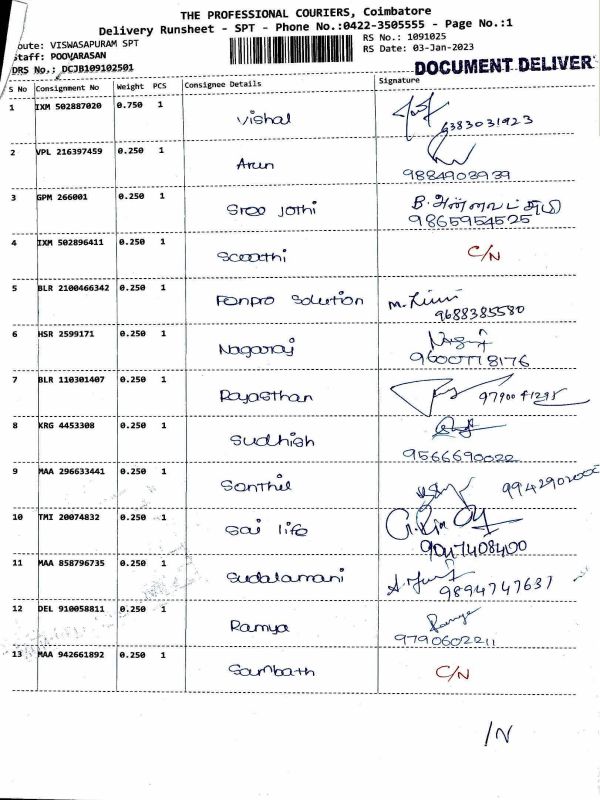 THE PROFESSIONAL COURIERS, Coimbatore
Delivery Runsheet - SPT - Phone No.:0422-3505555 - Page No.:1
oute: VISWASAPURAM SPT RS No.: 1091025
Staff: POOVARASAN RS Date: 03-Jan-2023
DRS No.: DCJB109102501 DOCUMENT DELIVER
S No Consignment No Weight PCS Consignee Details Signature
1 IXM 502887020 0.750 1 Vishal 6383031923
2 VPL 216397459 0.250 1 Arun 9884903939
3 GPM 266001 0.250 1 Sree Jothi B.
9865954525
4 IXM 502896411 0.250 1 C/N
5 BLR 2100466342 0.250 1 Fonpro Solution
9688385580
6 HSR 2599171 0.250 1 Nagaraj
9600778176
7 BLR 110301407 0.250 1 Rajasthan 9790041295
8 KRG 4453308 0.250 1 Sudhish
9566690022
9 MAA 296633441 0.250 1 Senthil
10 TMI 20074832 0.250 1 Sai life
9047408400
11 MAA 858796735 0.250 1 Sudalamani 9894747637
12 DEL 910058811 0.250 1 Ramya Ramya
9790602211
13 MAA 942661892 0.250 1 Sambath C/N
/N